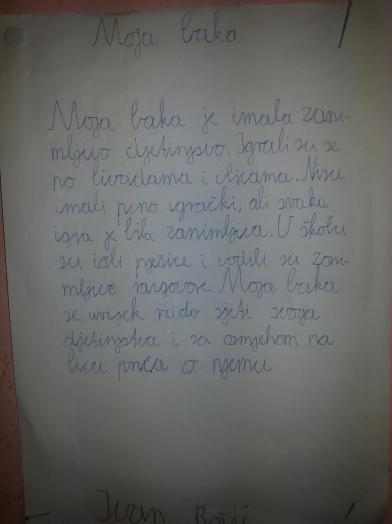 Moja baka
Moja baka je imala zani-
mljivo djetinjstvo. Igrali su se
po livadama i ulicama. Nisu
imali puno igrački, ali svaka
igra je bila zanimljiva. U školu
su išli pješice i vodili su zani-
mljive razgovore. Moja baka
se uvijek rado sjeti svoga
djetinjstva i sa osmjehom na
licu priča o njemu.
Ivan Božić